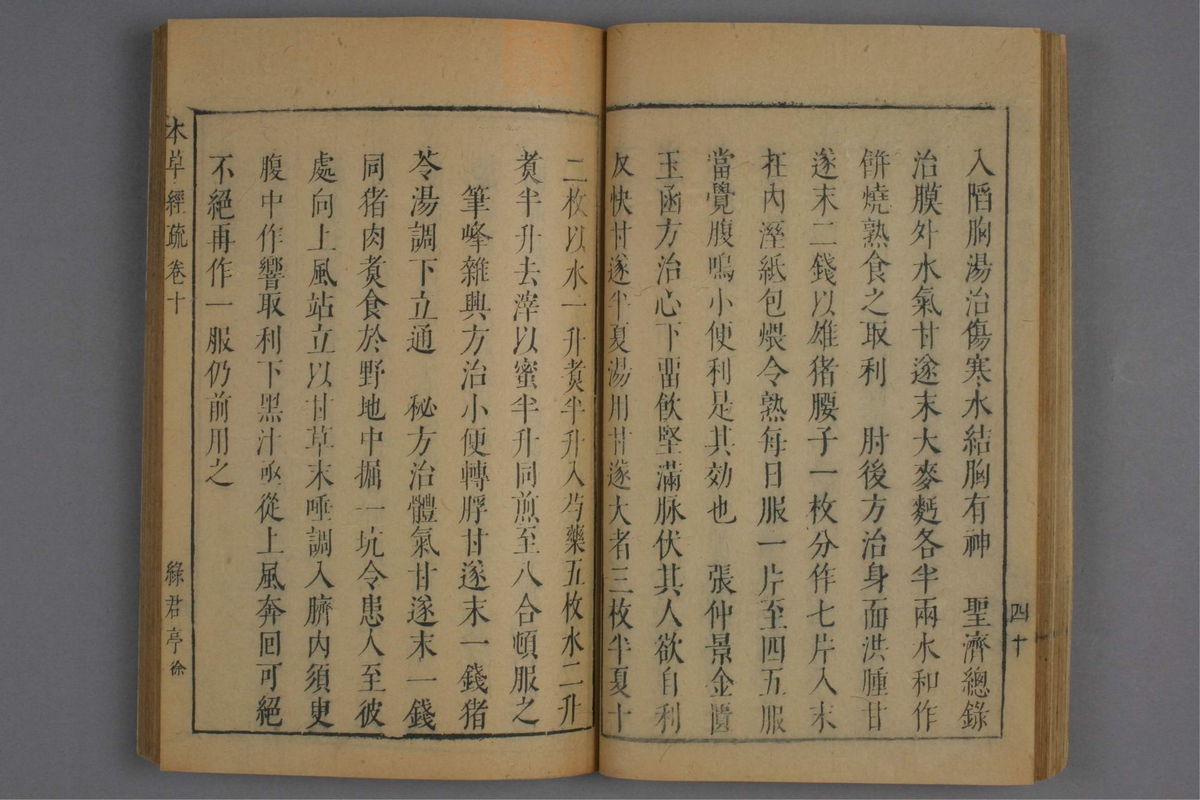 入陷胸湯治傷寒水結胸有神　聖濟總錄
治膜外水氣甘遂末大麥麪各半兩水和作
餅燒熟食之取利　肘後方治身面洪腫甘
遂末二錢以雄猪腰子一枚分作七片入末
在內溼紙包煨令熟每日服一片至四五服
當覺腹鳴小便利是其効也　張仲景金匱
玉函方治心下畱飲堅滿脉伏其人欲自利
反快甘遂半夏湯用甘遂大者三枚半夏十
四十
二枚以水一升煑半升入芍藥五枚水二升
煑半升去滓以蜜半升同煎至八合頓服之
筆峰雜興方治小便轉脬甘遂末一錢猪
苓湯調下立通　秘方治體氣甘遂末一錢
同猪肉煑食於野地中掘一坑令患人至彼
處向上風站立以甘草末唾調入臍內須臾
腹中作響取利下黑汁亟從上風奔回可絕
不絕再作一服仍前用之
本草經疏　卷十　綠君亭　徐